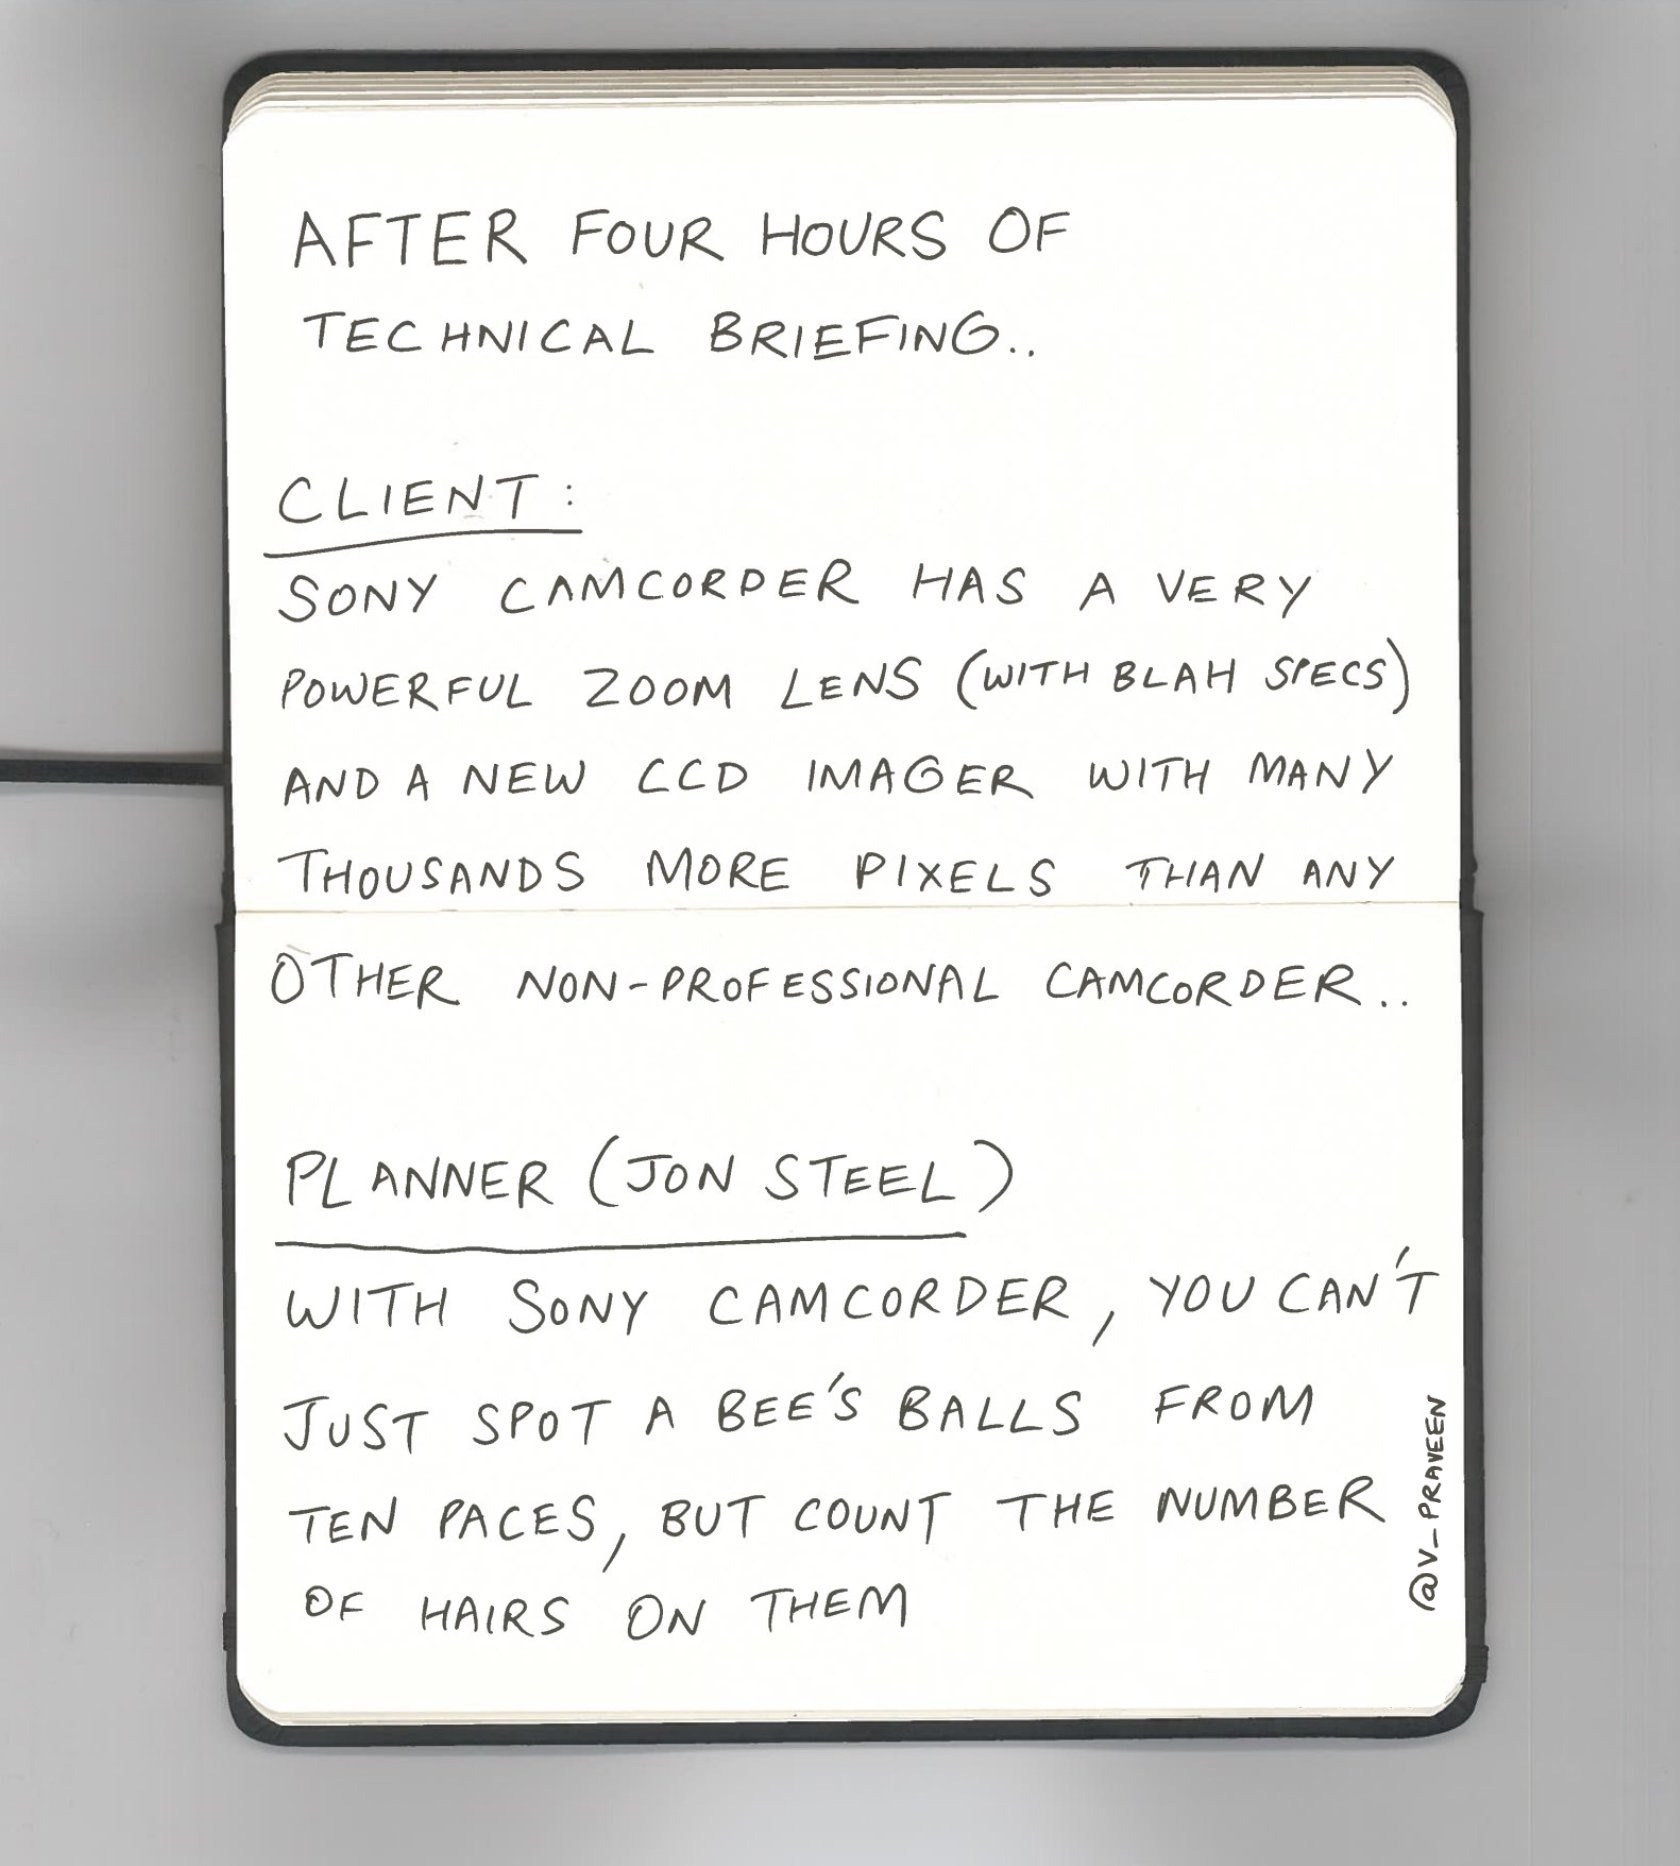 AFTER FOUR HOURS OF
TECHNICAL BRIEFING..
CLIENT:
SONY CAMCORDER HAS A VERY
POWERFUL ZOOM LENS (WITH BLAH SPECS)
AND A NEW CCD IMAGER WITH MANY
THOUSANDS MORE PIXELS THAN ANY
OTHER NON-PROFESSIONAL CAMCORDER..
PLANNER (JON STEEL)
WITH SONY CAMCORDER, YOU CAN'T
JUST SPOT A BEE'S BALLS FROM
TEN PACES, BUT COUNT THE NUMBER
OF HAIRS ON THEM
@V_PRAVEEN